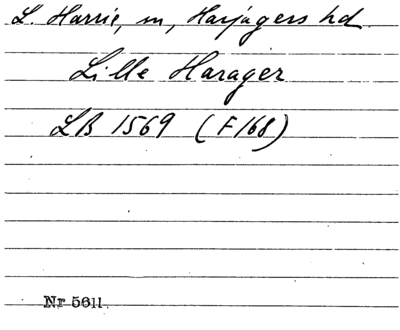 L. Harrie, m, Harjagers hd
Lille Harager
LB 1569 (F168)
Nr 5611.